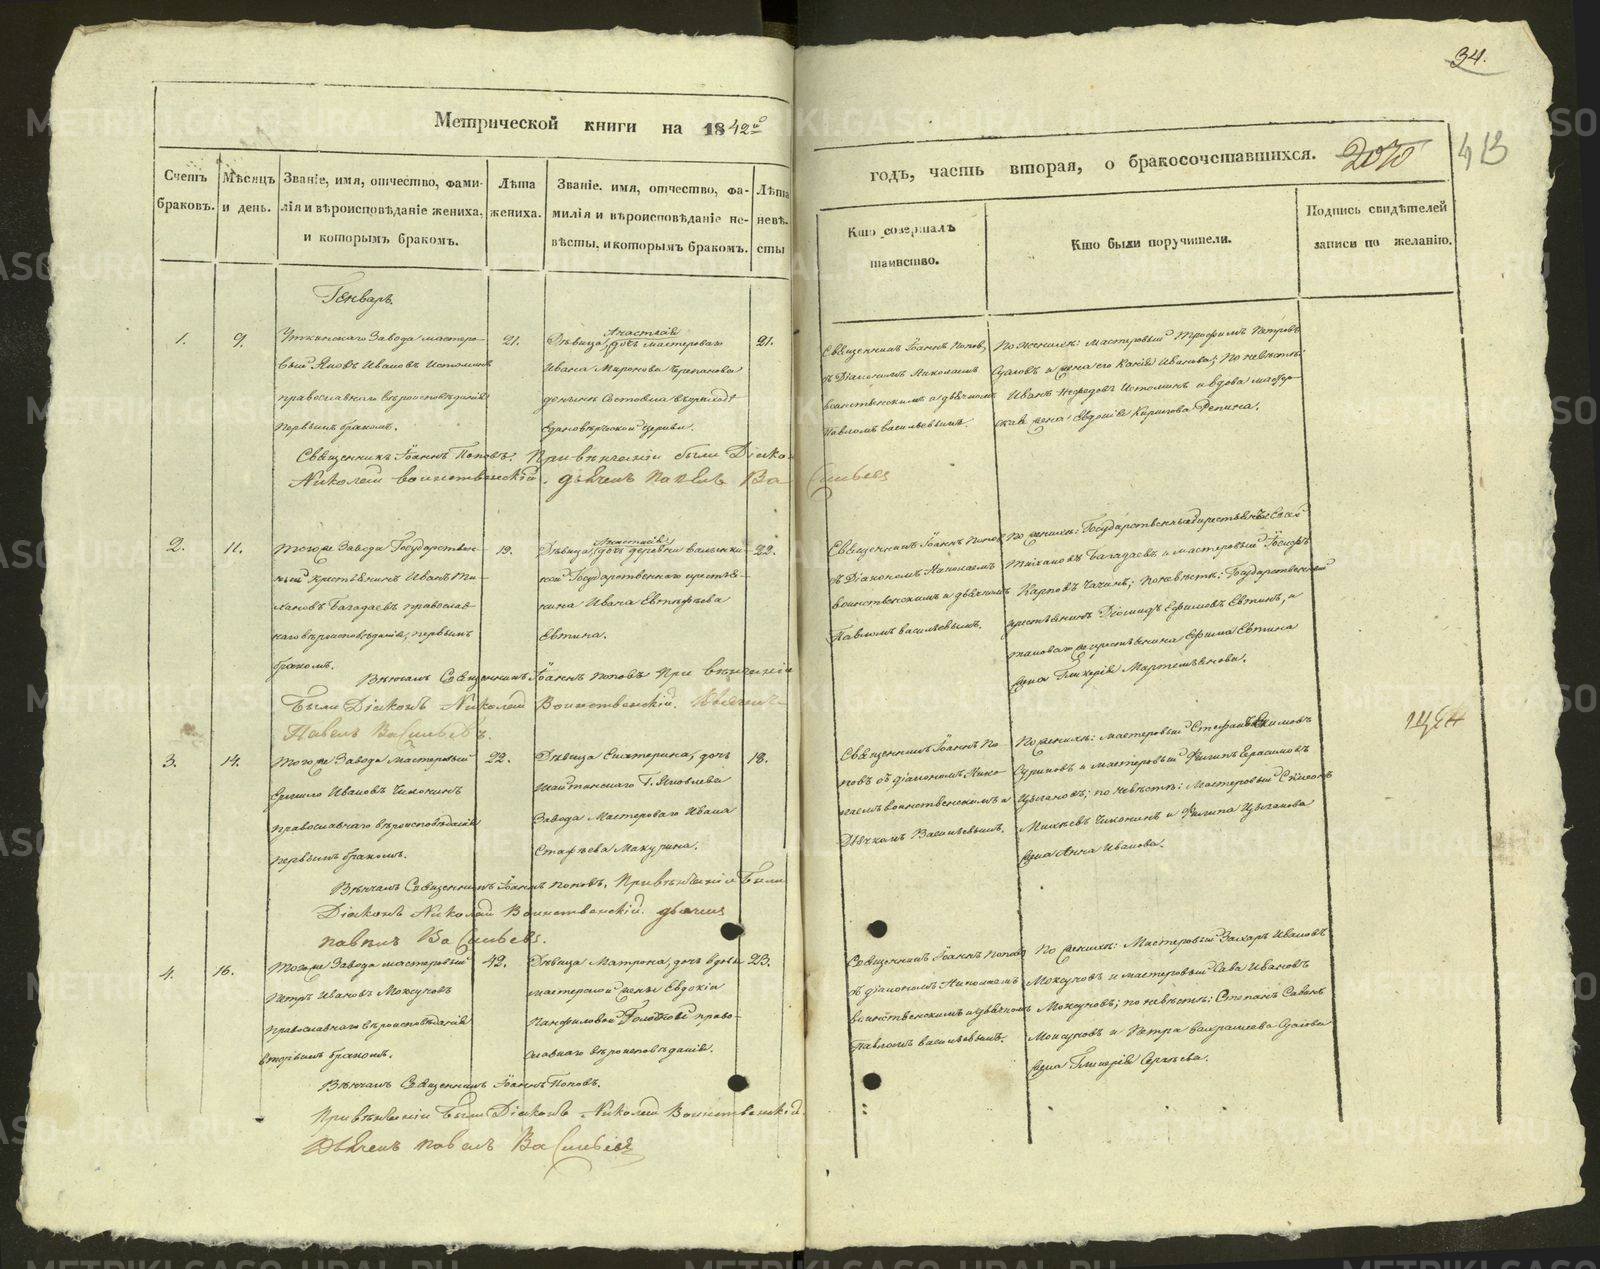 34.
Метрической книги на 1842й
годъ, часть вторая, о бракосочетавшихся.
2070
413
Счетъ браковъ.
Мѣсяцъ и день.
Званіе, имя, отчество, фами-
лія и вѣроисповѣданіе жениха,
и которымъ бракомъ.
Лѣта
жениха.
Званіе. имя, отчество, фа-
милія и вѣроисповѣданіе не-
вѣсты, и которымъ бракомъ.
Лѣта
невѣ-
сты
Кто совершалъ
таинство.
Кто были поручители.
Подпись свидѣтелей
записи по желанію.
Генварь
1. 9.
Уткинскаго Завода мастеро-
вый Яковъ Ивановъ Истоминъ
православнаго вѣроисповѣданія
первымъ бракомъ.
21.
Анастасія
Дѣвица, дочь мастероваго
Ивана Миронова Черепанова
Единовѣрческой церкви.
21.
Священникъ Іоаннъ Поповъ,
съ Діакономъ Николаемъ
воинственскимъ и дьячкомъ
Павломъ васильевымъ.
По женихѣ: мастеровый Трофимъ Петровъ
и жена его Ивановна; По невѣстѣ:
Иванъ Нефедовъ Истоминъ и вдова мастер-
ская жена Евдокія Кирилова Репина.
Священникъ Іоаннъ Поповъ: При вѣнчаніи были Діако
Николай воинственскій. дьячекъ Павелъ Васильевъ
2. 11.
Тогоже Завода Государствен-
ный крестьянинъ Иванъ Ти-
хановъ Багадаевъ православ-
наго вѣроисповѣданія, первымъ
бракомъ.
19.
Анастасія
Дѣвица, дочь деревни
Государственнаго крестья-
нина Ивана Евтина.
22.
Священникъ Іоаннъ Поповъ
съ Діакономъ Николаемъ
воинственскимъ и дьячкомъ
Павломъ васильевымъ.
По женихѣ: Государственный крестьянинъ
Тихановъ Багадаевъ и мастеровый Іосифъ
Карповъ Чагинъ; по невѣстѣ: Государственный
крестьянинъ Діомидъ Ефимовъ Евтинъ, и
таковаго же крестьянина Ефима Евтина
жена Гликерія Мартемьянова.
Вѣнчалъ Священникъ Іоаннъ Поповъ При вѣнчаніи
Были Діаконъ Николай Воинственскій. дьячекъ
Павелъ Васильевъ.
3. 14.
Тогоже Завода Мастеровый
Ермило Ивановъ Чихонинъ
православнаго вѣроисповѣданія
первымъ бракомъ.
22.
Дѣвица Екатерина, дочь
Шайтанскаго Г. Яковлева
Завода Мастероваго Ивана
Стафѣева Макурина.
18.
Священникъ Іоаннъ По-
повъ съ діакономъ Нико-
лаемъ воинственскимъ и
Дьячкомъ Васильевымъ.
По женихѣ: мастеровый Стефанъ Екимовъ
Суриковъ и мастеровый Филипъ Герасимовъ
Цыгановъ; по невѣстѣ: Мастеровый Симеонъ
Михѣевъ Чихонинъ и Филипа Цыганова
жена Анна Иванова.
Вѣнчалъ Священникъ Іоаннъ Поповъ. При вѣнчаніи Были
Діаконъ Николай Воинственскій. дьячекъ
Павелъ Васильевъ.
4. 16.
Тогоже Завода мастеровый
Петръ Ивановъ Мокеуновъ
православнаго вѣроисповѣданія
вторымъ бракомъ.
42.
Дѣвица Матрона, дочь вдовы
мастерской жены Евдокіи
Панфиловой право-
славнаго вѣроисповѣданія.
23.
Священникъ Іоаннъ Поповъ
съ діакономъ Николаемъ
воинственскимъ и дьячкомъ
Павломъ васильевымъ.
По женихѣ: Мастеровый Захаръ Ивановъ
Мокеуновъ и мастеровый Сава Ивановъ
Мокеуновъ; по невѣстѣ: Степанъ Савинъ
Мокеуновъ и Петра
жена Гликерія Сергѣева.
Вѣнчалъ Священникъ Іоаннъ Поповъ.
При вѣнчаніи Были Діаконъ Николай Воинственскій
Дьячекъ Павелъ Васильевъ